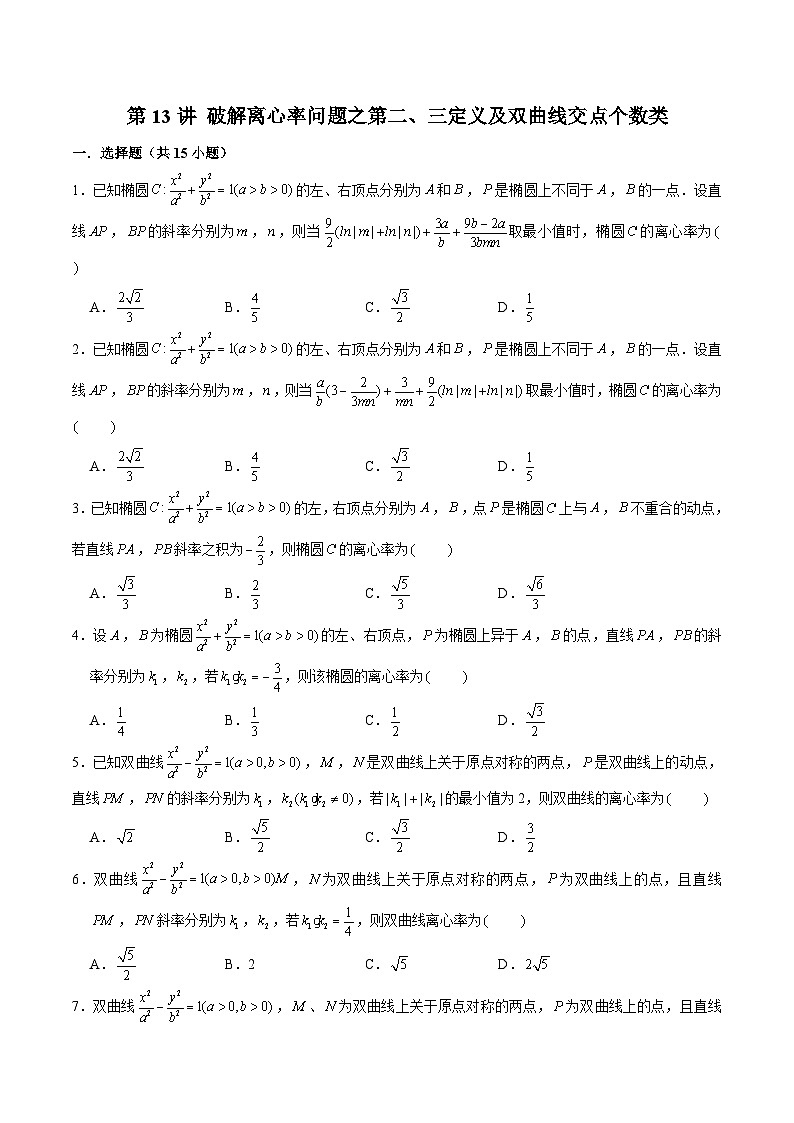 第 13 讲 破解离心率问题之第二、三定义及双曲线交点个数类
一．选择题（共 15 小题）
1.已知椭圆 $C:\frac{x^2}{a^2}+\frac{y^2}{b^2}=1(a>b>0)$ 的左、右顶点分别为 A 和 B，P 是椭圆上不同于 A，B 的一点．设直
线 AP，BP 的斜率分别为 m，n，则当 $\frac{9}{2}(ln|m|+ln|n|)+\frac{3a}{b}+\frac{9b-2a}{3bmn}$ 取最小值时，椭圆 C 的离心率为 (
)
A．$\frac{2\sqrt{2}}{3}$ B．$\frac{4}{5}$ C．$\frac{\sqrt{3}}{2}$ D．$\frac{1}{5}$
2.已知椭圆 $C:\frac{x^2}{a^2}+\frac{y^2}{b^2}=1(a>b>0)$ 的左、右顶点分别为 A 和 B，P 是椭圆上不同于 A，B 的一点．设直
线 AP，BP 的斜率分别为 m，n，则当 $\frac{a}{b}(3-\frac{2}{3mn})+\frac{3}{mn}+\frac{9}{2}(ln|m|+ln|n|)$ 取最小值时，椭圆 C 的离心率为
( )
A．$\frac{2\sqrt{2}}{3}$ B．$\frac{4}{5}$ C．$\frac{\sqrt{3}}{2}$ D．$\frac{1}{5}$
3.已知椭圆 $C:\frac{x^2}{a^2}+\frac{y^2}{b^2}=1(a>b>0)$ 的左，右顶点分别为 A，B，点 P 是椭圆 C 上与 A，B 不重合的动点，
若直线 PA，PB 斜率之积为 $-\frac{2}{3}$，则椭圆 C 的离心率为 ( )
A．$\frac{\sqrt{3}}{3}$ B．$\frac{2}{3}$ C．$\frac{\sqrt{5}}{3}$ D．$\frac{\sqrt{6}}{3}$
4．设 A，B 为椭圆 $\frac{x^2}{a^2}+\frac{y^2}{b^2}=1(a>b>0)$ 的左、右顶点，P 为椭圆上异于 A，B 的点，直线 PA，PB 的斜
率分别为 $k_1$，$k_2$，若 $k_1 g k_2=-\frac{3}{4}$，则该椭圆的离心率为 ( )
A．$\frac{1}{4}$ B．$\frac{1}{3}$ C．$\frac{1}{2}$ D．$\frac{\sqrt{3}}{2}$
5．已知双曲线 $\frac{x^2}{a^2}-\frac{y^2}{b^2}=1(a>0,b>0)$，M，N 是双曲线上关于原点对称的两点，P 是双曲线上的动点，
直线 PM，PN 的斜率分别为 $k_1$，$k_2(k_1 g k_2\neq 0)$，若 $|k_1|+|k_2|$ 的最小值为 2，则双曲线的离心率为 ( )
A．$\sqrt{2}$ B．$\frac{\sqrt{5}}{2}$ C．$\frac{\sqrt{3}}{2}$ D．$\frac{3}{2}$
6．双曲线 $\frac{x^2}{a^2}-\frac{y^2}{b^2}=1(a>0,b>0)M$，N 为双曲线上关于原点对称的两点，P 为双曲线上的点，且直线
PM，PN 斜率分别为 $k_1$，$k_2$，若 $k_1 g k_2=\frac{1}{4}$，则双曲线离心率为 ( )
A．$\frac{\sqrt{5}}{2}$ B．2 C．$\sqrt{5}$ D．$2\sqrt{5}$
7．双曲线 $\frac{x^2}{a^2}-\frac{y^2}{b^2}=1(a>0,b>0)$，M、N 为双曲线上关于原点对称的两点，P 为双曲线上的点，且直线